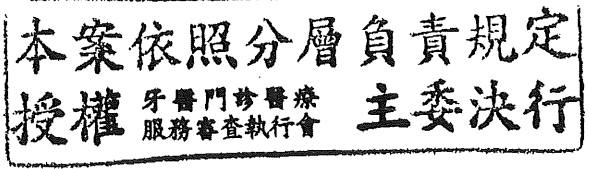 本案依照分層負責規定
授權
牙醫門診醫療
服務審查執行會
主委決行